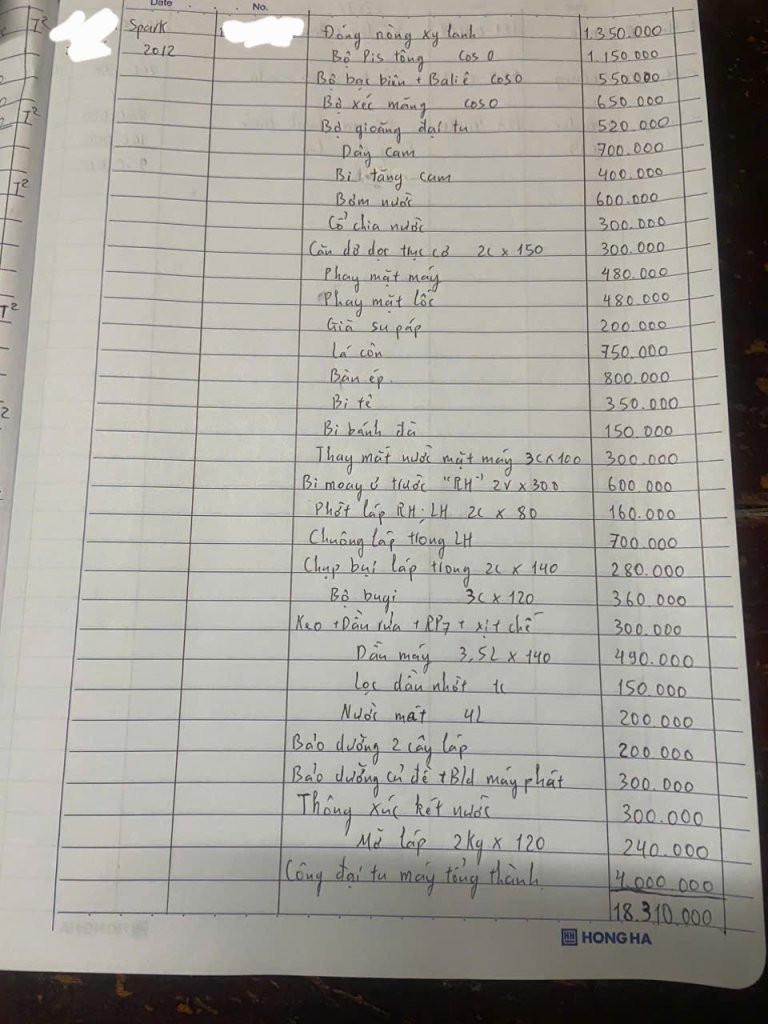 Date . . . No.
Spark Đóng nòng xy lanh 1.350.000
2012 Bộ Pis tông cos 0 1.150.000
Bộ bạc biên + Baliê cos0 550.000
Bộ xéc măng cos0 650.000
Bộ gioăng đại tu 520.000
Dây cam 700.000
Bi tăng cam 400.000
Bơm nước 600.000
Cổ chia nước 300.000
Căn dơ dọc trục cơ 2c x 150 300.000
Phay mặt máy 480.000
Phay mặt lốc 480.000
Giã su páp 200.000
Lá côn 750.000
Bàn ép. 800.000
Bi tê 350.000
Bi bánh đà 150.000
Thay mắt nước mặt máy 3c x 100 300.000
Bi moay ơ trước "RH" 2V x 300 600.000
Phớt láp RH; LH 2c x 80 160.000
Chuông láp trong LH 700.000
Chụp bụi láp trong 2c x 140 280.000
Bộ bugi 3c x 120 360.000
Keo + Dầu rửa + RP7 + xịt chế 300.000
Dầu máy 3,5L x 140 490.000
Lọc dầu nhớt 1c 150.000
Nước mát 4L 200.000
Bảo dưỡng 2 cây láp 200.000
Bảo dưỡng củ đề + B/d máy phát 300.000
Thông xúc két nước 300.000
Mỡ láp 2Kg x 120 240.000
Công đại tu máy tổng thành 4.000.000
18.310.000
HH HONG HA